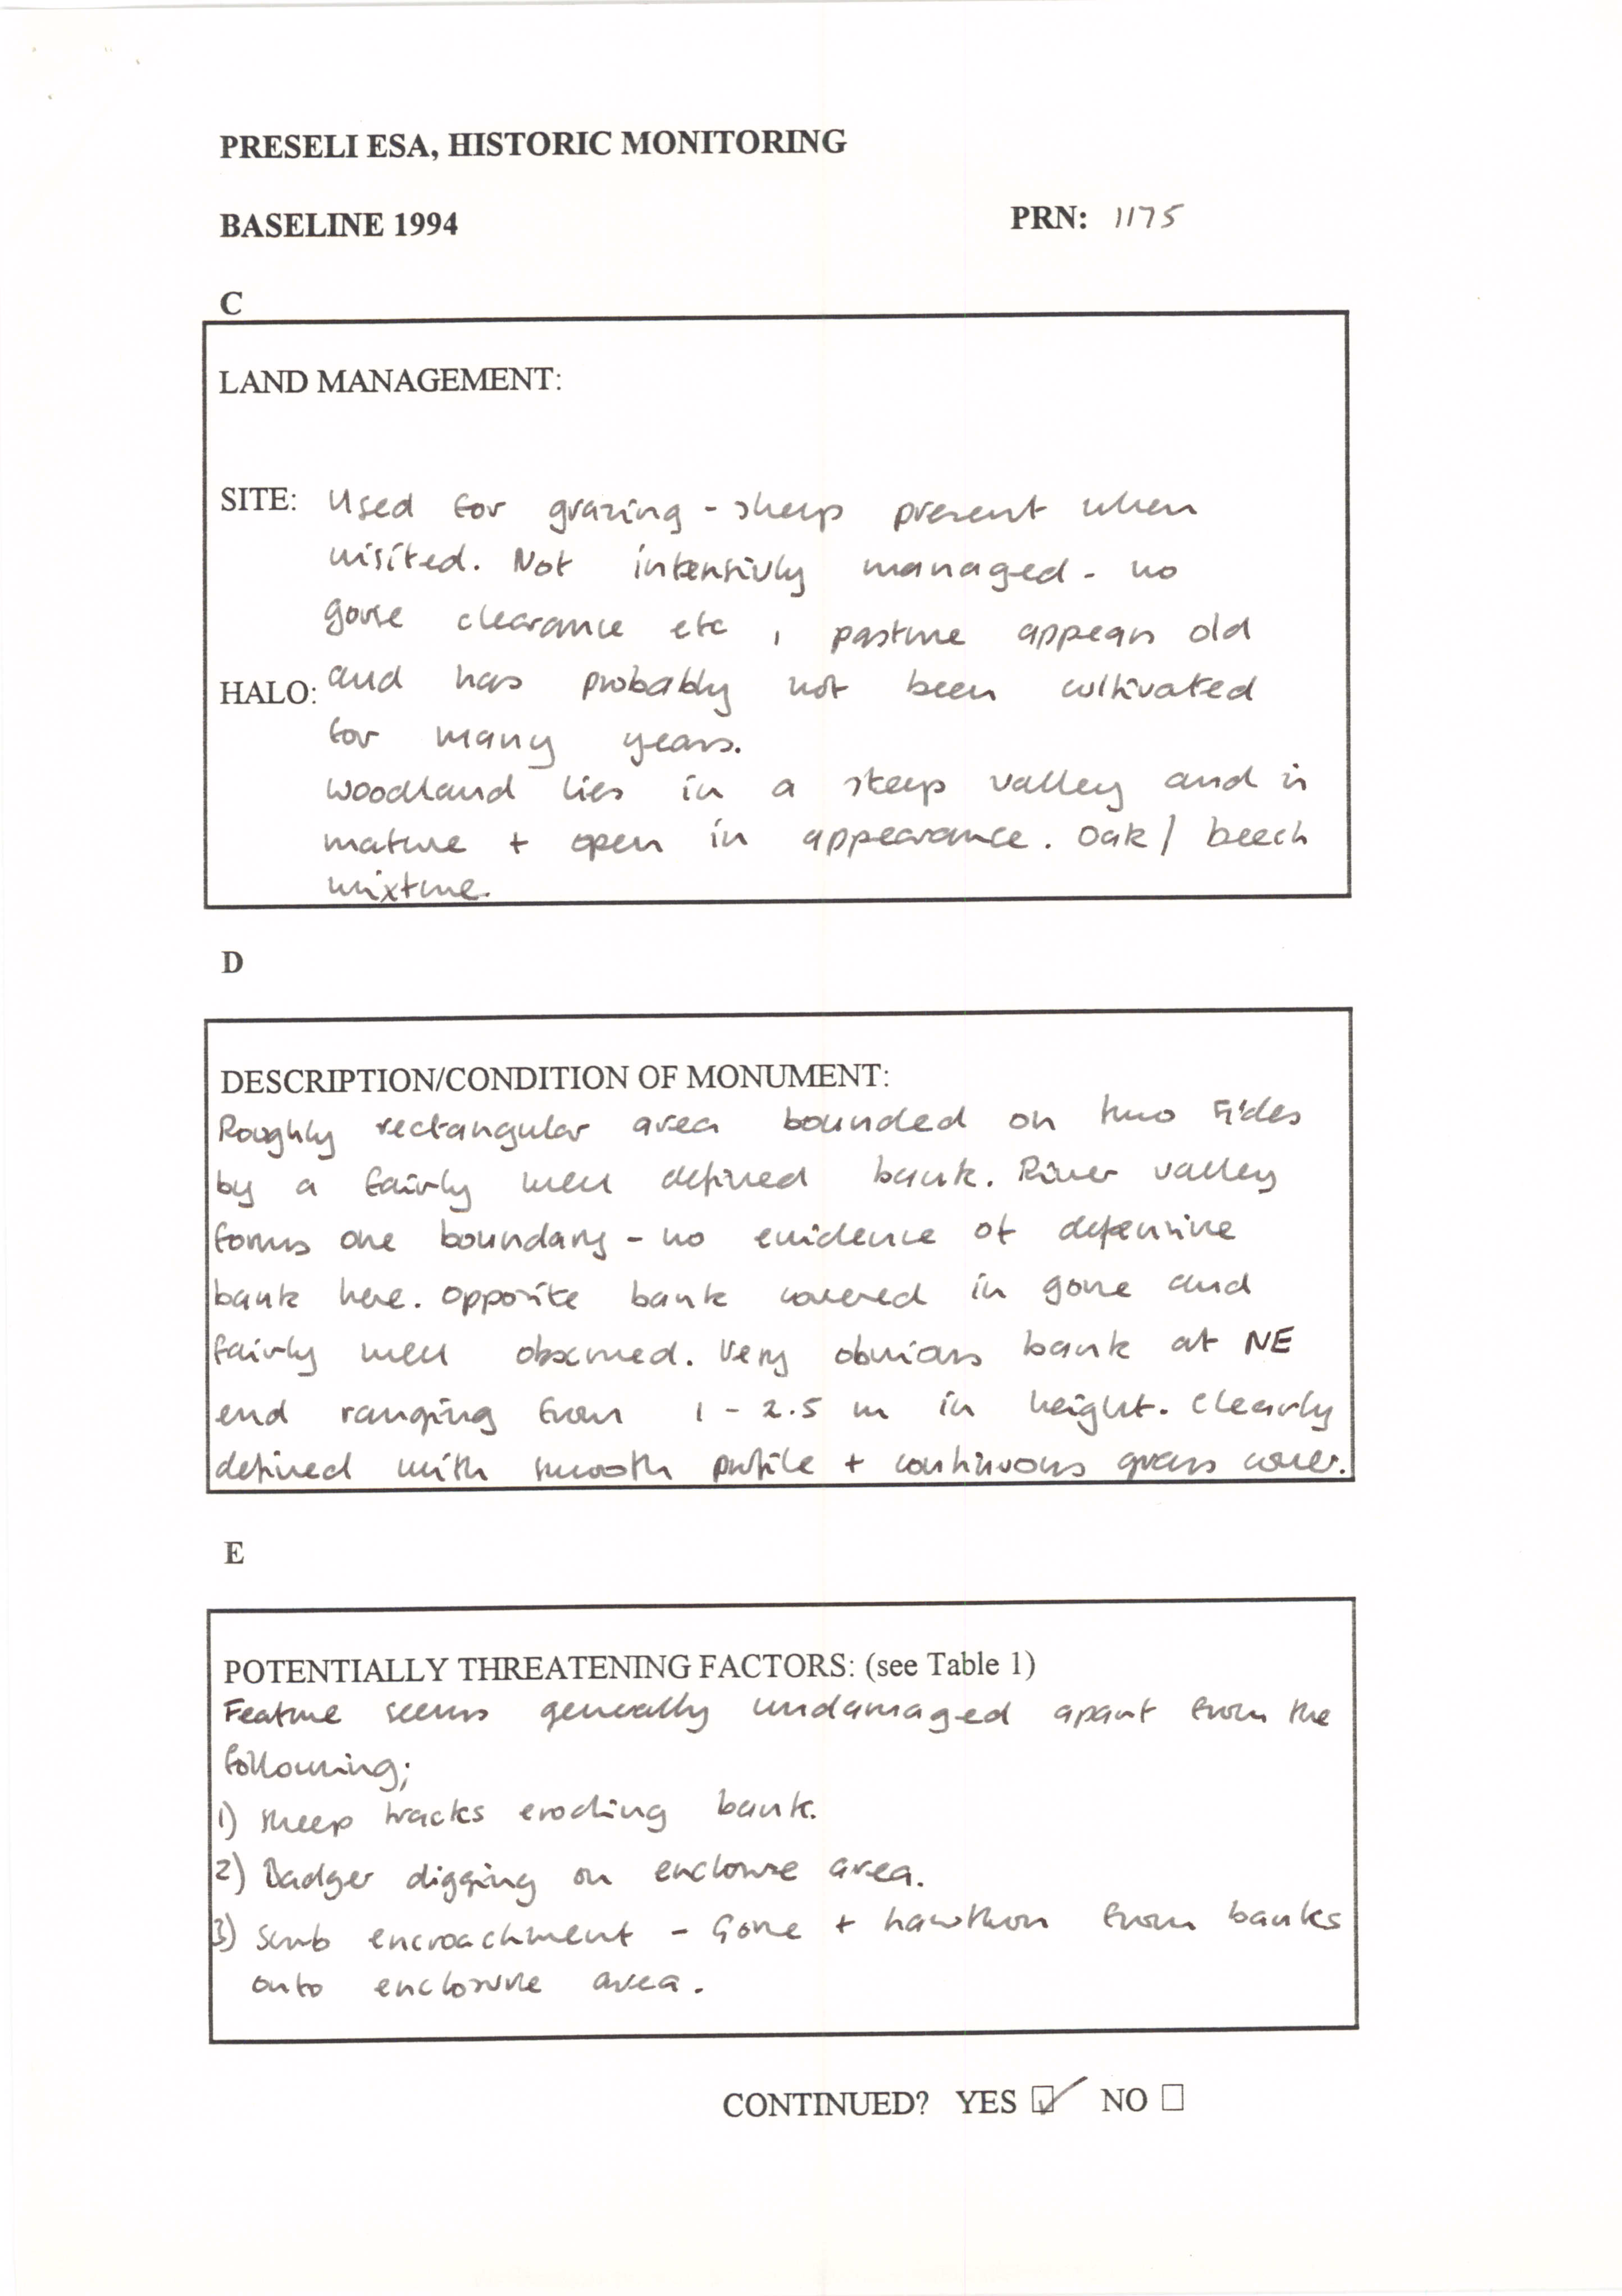 PRESELI ESA, HISTORIC MONITORING
BASELINE 1994 PRN: 1175
C
LAND MANAGEMENT:
SITE: Used for grazing - sheep present when
visited. Not intensivly managed - no
gorse clearance etc , pasture appears old
HALO: and has probably not been cultivated
for many years.
Woodland lies in a steep valley and is
mature + open in appearance. Oak / beech
mixture.
D
DESCRIPTION/CONDITION OF MONUMENT:
Roughly rectangular area bounded on two sides
by a fairly well defined bank. River valley
forms one boundary - no evidence of defensive
bank here. Opposite bank covered in gorse and
fairly well obscured. Very obvious bank at NE
end ranging from 1 - 2.5 m in height. Clearly
defined with smooth profile + continuous grass cover.
E
POTENTIALLY THREATENING FACTORS: (see Table 1)
Feature seems generally undamaged apart from the
following;
1) Sheep tracks eroding bank.
2) Badger digging on enclosure area.
3) Scrub encroachment - Gorse + hawthorn from banks
onto enclosure area.
CONTINUED? YES ☑ NO ☐